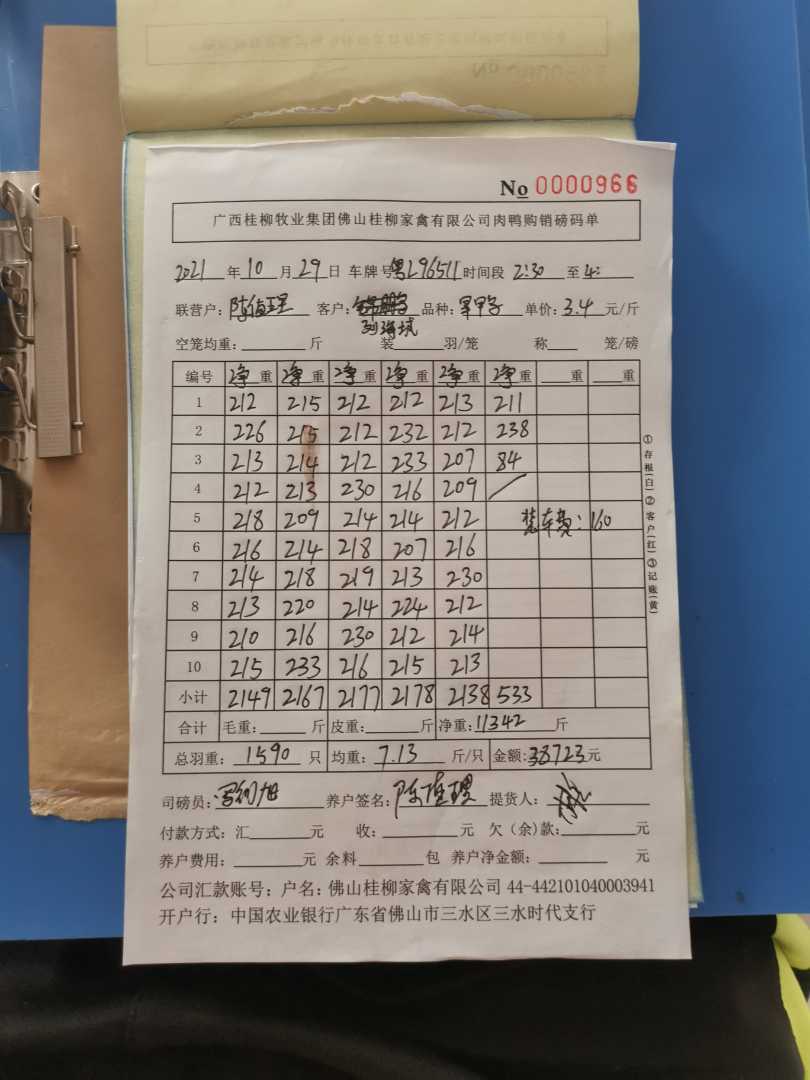 No 0000966
广西桂柳牧业集团佛山桂柳家禽有限公司肉鸭购销磅码单
2021 年 10 月 29 日 车牌号 粤L96511 时间段 2:30 至 4:
联营户: 客户: 品种: 单价: 3.4 元/斤
空笼均重: 斤 装 羽/笼 称 笼/磅
编号 净重 净重 净重 净重 净重 净重 重 重
1 212 215 212 212 213 211
2 226 215 212 232 212 238
3 213 214 212 233 207 84
4 212 213 230 216 209
5 218 209 214 214 212 装车费: 160
6 216 214 218 207 216
7 214 218 219 213 230
8 213 220 214 224 212
9 210 216 230 212 214
10 215 233 216 215 213
小计 2149 2167 2177 2178 2138 533
合计 毛重: 斤 皮重: 斤 净重: 11342 斤
总羽重: 1590 只 均重: 7.13 斤/只 金额: 38723 元
司磅员: 养户签名: 提货人:
付款方式: 汇 元 收: 元 欠(余)款: 元
养户费用: 元 余料 包 养户净金额: 元
公司汇款账号: 户名: 佛山桂柳家禽有限公司 44-442101040003941
开户行: 中国农业银行广东省佛山市三水区三水时代支行
①存根(白)②客户(红)③记账(黄)